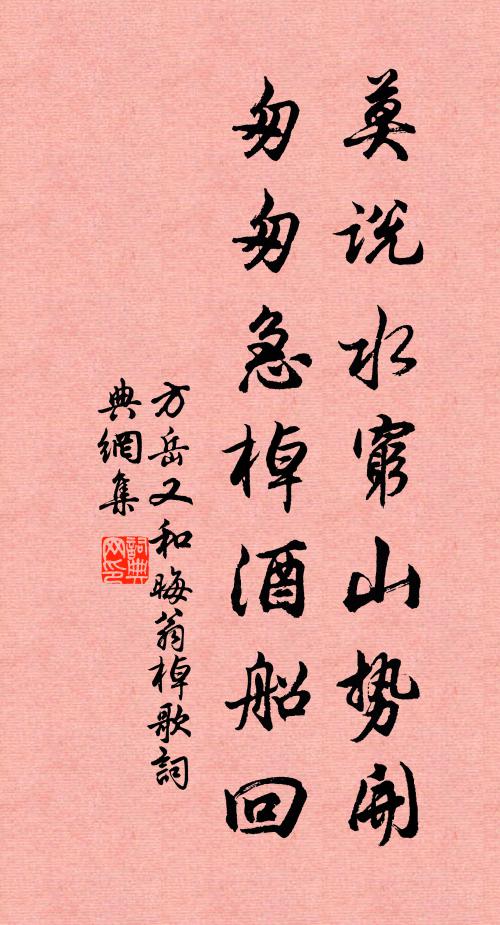 莫说水穷山势开
匆匆急棹酒船回
方岳又和晦翁棹歌词
典网集
词典网印